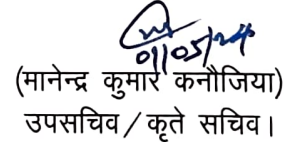 01/05/24
(मानेन्द्र कुमार कनौजिया)
उपसचिव / कृते सचिव।